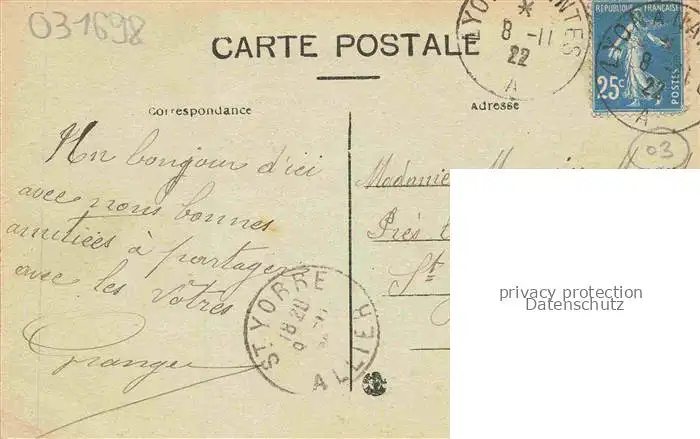 031698
CARTE POSTALE
LYON
NTES
*
8 -11
22
A
REPUBLIQUE FRANÇAISE
25c
POSTES
8
22
A
Correspondance
Adresse
03
Un bonjour d'ici
avec nous bonnes
amitiées à partager
avec les vôtres
Granger
Madame
Près
St
privacy protection
Datenschutz
ST YORRE
18 20
8 -11
ALLIER